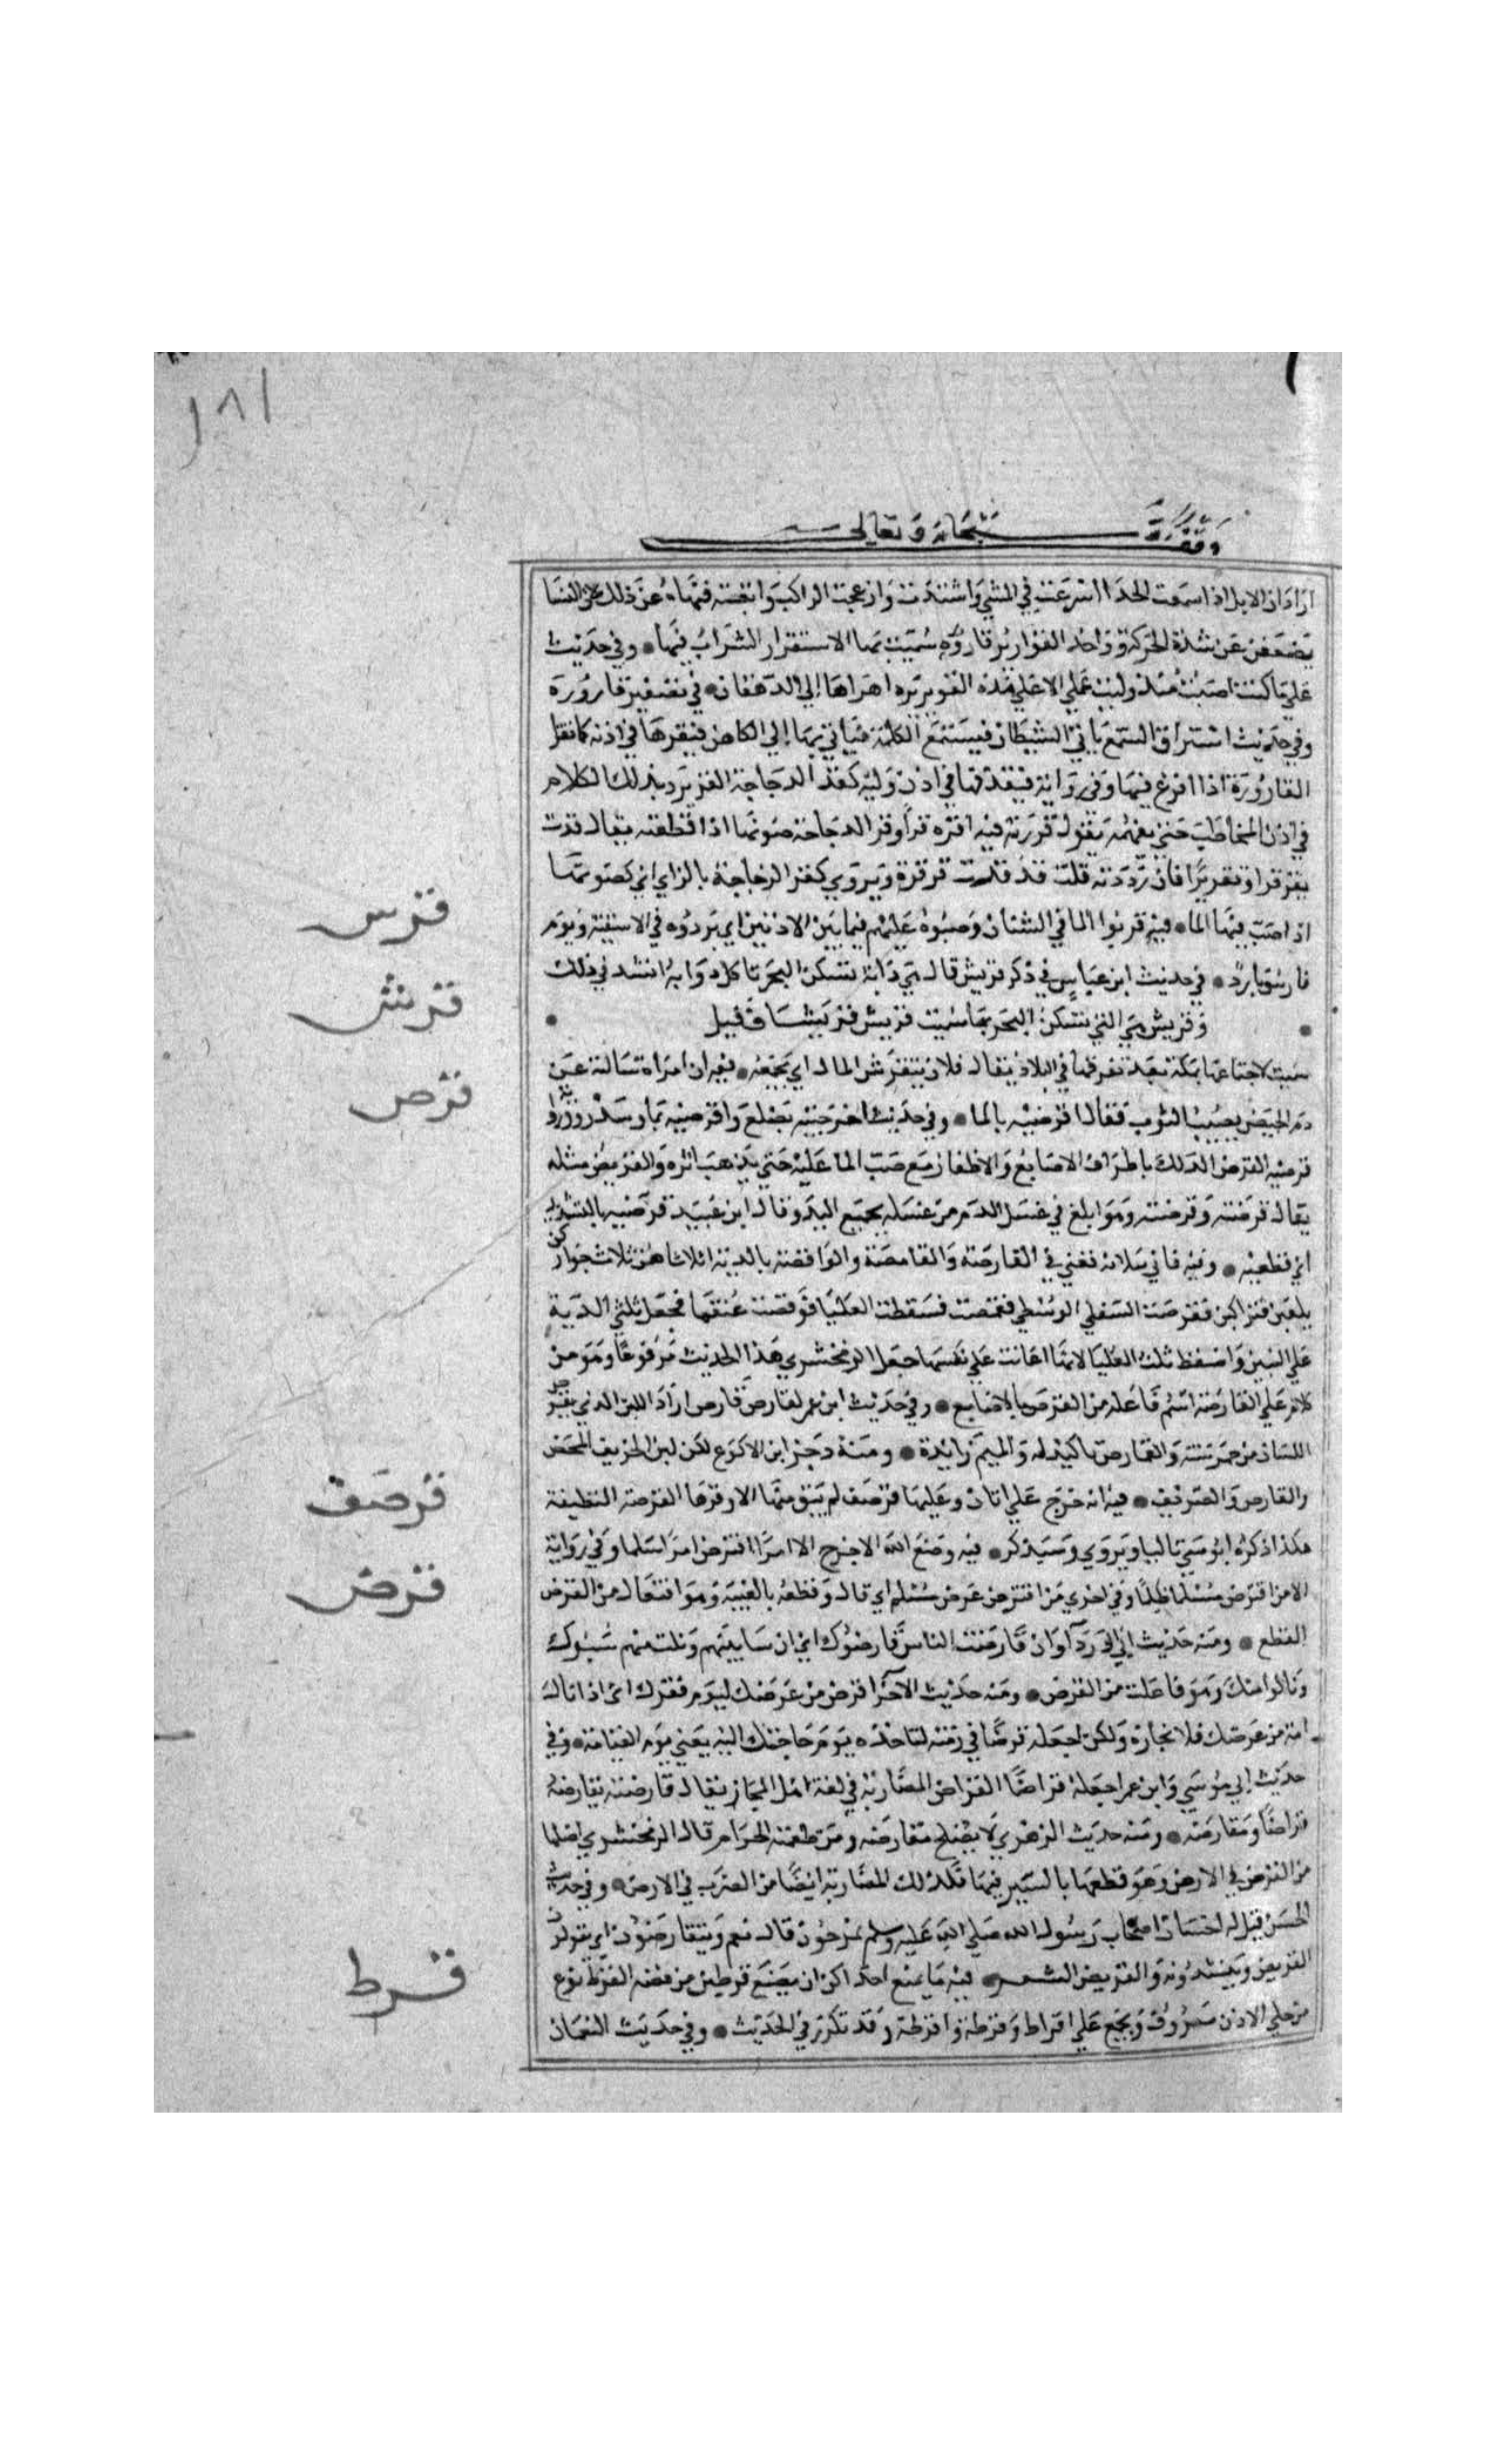 ١٨١
وقف لله سبحانه وتعالى
اراد ان الابل اذا سمعت الحدا اسرعت في المشي واشتدت وازعجت الراكب واتعبته فنهاه عن ذلك لان النسا
يضعفن عن شدة الحركة وواحد القوارير قارورة سميت بها لاستقرار الشراب فيها وفي حديث
علي ما اصبت منذ وليت عملي الا هذه القويريرة اهداها الي الدهقان في تصغير قارورة
وفي حديث استراق السمع ياتي الشيطان فيستمع الكلمة فياتي بها الي الكاهن فيقرها في اذنه كما تقر
القارورة اذا افرغ فيها وفي رواية فيقذفها في اذن وليه كقر الدجاجة القر ترديدك الكلام
في اذن المخاطب حتي يفهمه يقول قررته فيه اقره قرا وقر الدجاجة صوتها اذا قطعته يقال قرت
تقر قرا وقريرا فان رددته قلت قرقرت قرقرة ويروي كقر الزجاجة بالزاي اي كصوتها
اذا صب فيها الما فيه قرسوا الما في الشنان وصبوه عليهم فيما بين الاذانين اي بردوه في الاسقية ويوم
قارس بارد في حديث ابن عباس في ذكر قريش قال هي دابة تسكن البحر تاكل دوابه انشد في ذلك
وقريش هي التي تسكن البحر بها سميت قريش قريشا وقيل
سميت لاجتماعها بمكة بعد تفرقها في البلاد يقال فلان يتقرش المال اي يجمعه فيه ان امراة سالته عن
دم الحيض يصيب الثوب فقال اقرصيه بالما وفي حديث اخر حتيه بضلع واقرصيه بما وسدر وروي
قرصيه القرص الدلك باطراف الاصابع والاظفار مع صب الما عليه حتي يذهب اثره والتقريص مثله
يقال قرصته وقرصته وهو ابلغ في غسل الدم من غسله بجميع اليد وقال ابو عبيد قرصيه بالتشديد
اي قطعيه وفيه قضي في القارصة والقامصة والواقصة بالدية اثلاثا هن ثلاث جوار كن
يلعبن فتراكبن فقرصت السفلي الوسطي فقمصت فسقطت العليا فوقصت عنقها فجعل ثلثي الدية
علي الثنتين واسقط ثلث العليا لانها اعانت علي نفسها جعل الزمخشري هذا الحديث مرفوعا وهو من
كلام علي القارصة اسم فاعله من القرص بالاصابع وفي حديث ابن عمر لقارص قمارص اراد اللبن الذي يقرص
اللسان من حموضته والقمارص تاكيد له والميم زايدة ومنه رجز ابن الاكوع لكن لبن الخريف المحض
والقارص والصريف فيه انه خرج علي اتان وعليها قرصف لم يبق منها الا قرقرها القرصف القطيفة
هكذا ذكره ابو موسي بالرا ويروي وسيذكر فيه وضع الله الحرج الا امرا اقترض امرا مسلما وفي رواية
الا من اقترض مسلما ظلما وفي اخري من اقترض عرض مسلم اي نال منه وقطعه بالغيبة وهو افتعال من القرض
القطع ومنه حديث ابي الدردآ وان قارضت الناس قارضوك اي ان ساببتهم ونلت منهم سبوك
ونالوا منك وهو فاعلت من القرض ومنه حديثه الآخر اقرض من عرضك ليوم فقرك اي اذا نال
احد من عرضك فلا تجازه ولكن اجعله قرضا في ذمته لتاخذه يوم حاجتك اليه يعني يوم القيامة وفي
حديث ابي موسي وابن عمر اجعله قراضا القراض المضاربة في لغة اهل الحجاز يقال قارضته يقارضه
قراضا ومقارضة ومنه حديث الزهري لا يصلح مقارضة من طعمته الحرام قال الزمخشري اصلها
من القرض في الارض وهو قطعها بالسير فيها وكذلك المضاربة ايضا من الضرب في الارض وفي حديث
الحسن قيل له اكان اصحاب رسول الله صلي الله عليه وسلم يمزحون قال نعم ويتقارضون اي يقولون
القريض وينشدونه والقريض الشعر فيه ما يمنع احداكن ان تصنع قرطين من فضة القرط نوع
من حلي الاذن معروف ويجمع علي اقراط وقرطة واقرطة وقد تكرر في الحديث وفي حديث النعمان
قرس
قرش
قرص
قرصف
قرض
قرط